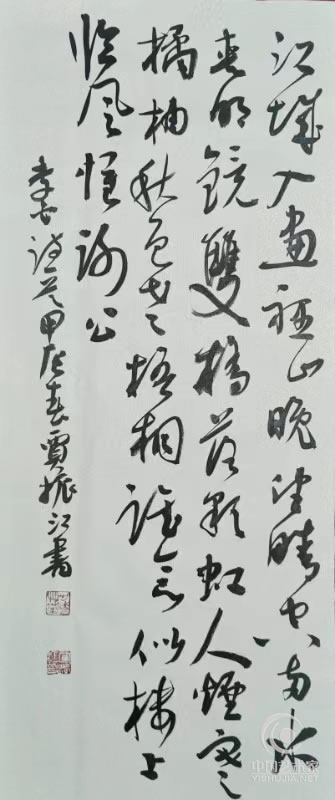 江城入畫裡山晚望晴空兩水
夾明鏡雙橋落彩虹人煙寒
橘柚秋色老梧桐誰念北樓上
臨風懷謝公
李白詩甲辰春賈振江書
中国艺术家
YISHUJIA.NET